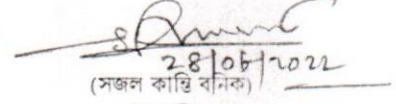 28/06/2022
(সজল কান্তি বনিক)